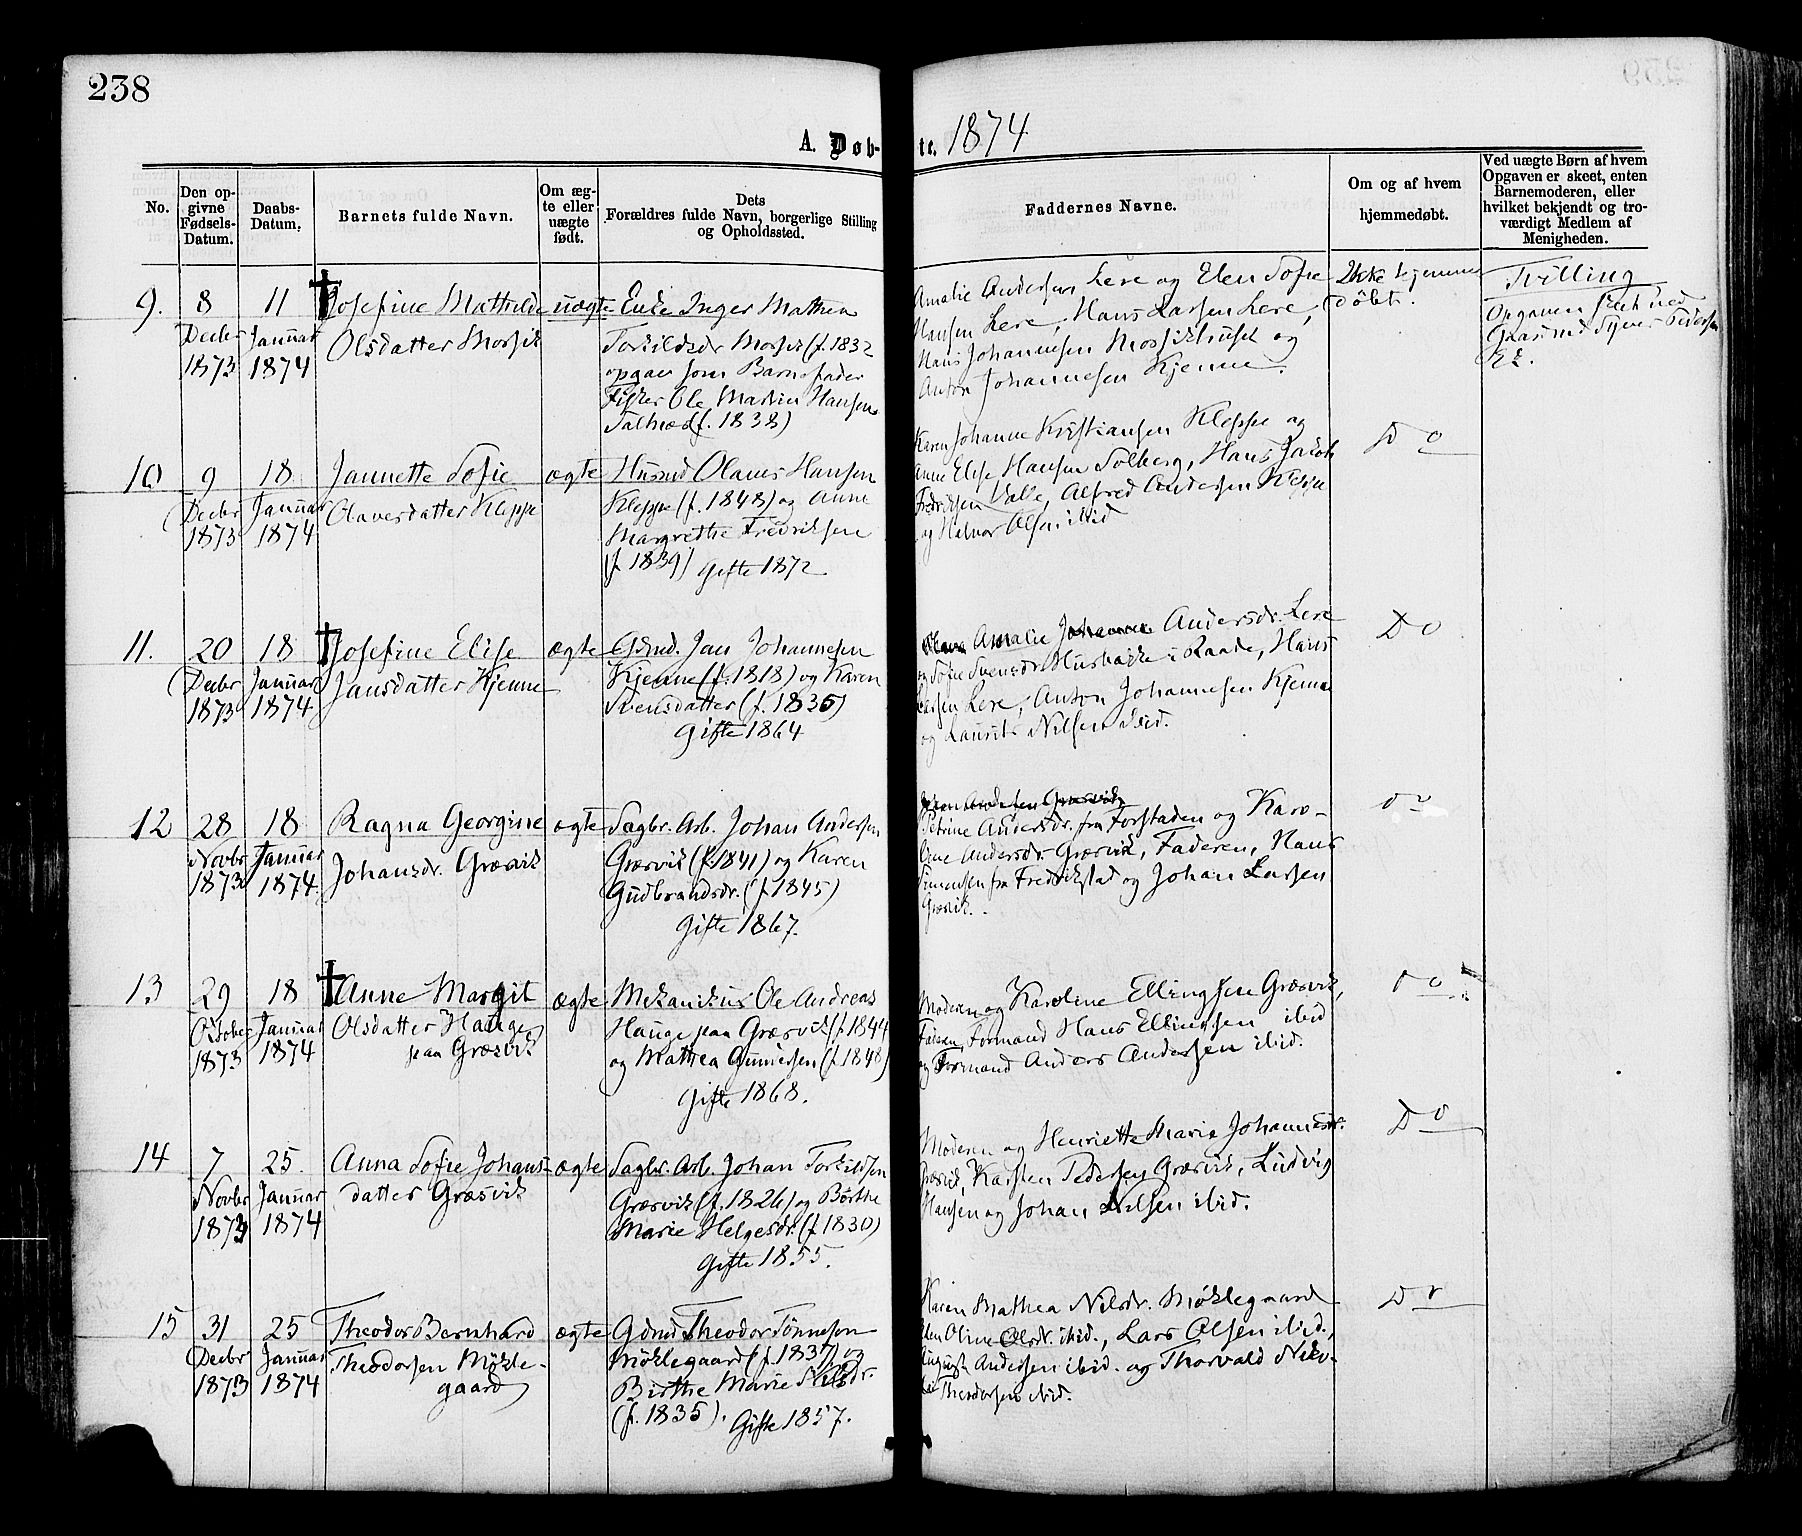 238
A. Døb-
te. 1874
No.
Den op-
givne
Fødsels-
Datum.
Daabs-
Datum.
Barnets fulde Navn.
Om æg-
te eller
uægte
født.
Dets
Forældres fulde Navn, borgerlige Stilling
og Opholdssted.
Faddernes Navne.
Om og af hvem
hjemmedøbt.
Ved uægte Børn af hvem
Opgaven er skeet, enten
Barnemoderen, eller
hvilket bekjendt og tro-
værdigt Medlem af
Menigheden.
9.
8
Decbr
1873
11
Januar
1874
Josefine Mathilde
Olsdatter Mosvik
uægte
Enke Inger Mathea
Torkildsdr
(f. 1832
opgav som Barnefader
Fisker Ole Martin Hansen
(f. 1838)
Amalie Andersen Lere og Elen Sofie
Hansen Lere, Hans Larsen Lere,
Hans Johannesen og
Anton Johannesen Kjenne.
Ikke hjemme
døbt.
Tvilling
Opgaven skeet ved
Pedersen
10
9
Decbr
1873
18
Januar
1874
Jannette Sofie
Olavesdatter Kleppe
ægte
Husmd Olaves Hansen
Kleppe (f. 1848) og Anne
Margrethe Fredriksen
(f. 1839) Gifte 1872
Karen Johanne Kristiansen Kleppe og
Anne Elise Hansen Solberg, Hans Jakob
Fredriksen Valle, Alfred Andersen Kleppe
og Halvor Olsen ibid
Do
11.
20
Decbr
1873
18
Januar
1874
Josefine Elise
Jansdatter Kjenne
ægte
Gdmd. Jan Johannesen
Kjenne (f. 1818) og Karen
Svensdatter (f. 1835)
Gifte 1864
Amalie Johanne Andersdr. Lere
og Sofie Svensdr. i Raade, Hans
Larsen Lere, Anton Johannesen Kjenne
og Laurits Nilsen ibid.
Do
12
28
Novbr
1873
18
Januar
1874.
Ragna Georgine
Johansdr. Græsvik
ægte
Sagbr. Arb. Johan Andersen
Græsvik (f. 1841) og Karen
Gudbrandsdr. (f. 1845)
Gifte 1867.
Petrine Andersdr. fra Forstaden og Karo-
line Andersdr. Græsvik, Faderen, Hans
Simensen fra Fredrikstad og Johan Larsen
Græsvik.
Do
13
29
October
1873
18
Januar
1874
Anne Margit
Olsdatter Hauge
paa Græsvik
ægte
Mekanikus Ole Andreas
Hauge paa Græsvik (f. 1844
og Mathea Gunnersen (f. 1848)
Gifte 1868.
Moderen og Karoline Ellingsen Græsvik,
Faderen, Formand Hans Ellingsen ibid
og Formand Anders Andersen ibid.
Do
14
7
Novbr
1873
25.
Januar
1874
Anna Sofie Johans-
datter Græsvik
ægte
Sagbr. Arb. Johan Torkildsen
Græsvik (f. 1826) og Børthe
Marie Helgesdr. (f. 1830)
Gifte 1855.
Moderen og Henriette Marie Johannesdr.
Græsvik, Karsten Pedersen Græsvik, Ludvig
Hansen og Johan Nilsen ibid.
Do
15
31
Decbr
1873
25
Januar
1874
Theodor Bernhard
Theodorsen Møkle-
gaard
ægte
Gdmd Theodor Tønnesen
Møklegaard (f. 1837) og
Birthe Marie Nilsdr.
(f. 1835). Gifte 1857.
Karen Mathea Nilsdr. Møklegaard
Elen Oline Olsdr. ibid., Lars Olsen ibid.,
August Andersen ibid. og Thorvald Niko-
lai Theodorsen ibid.
Do